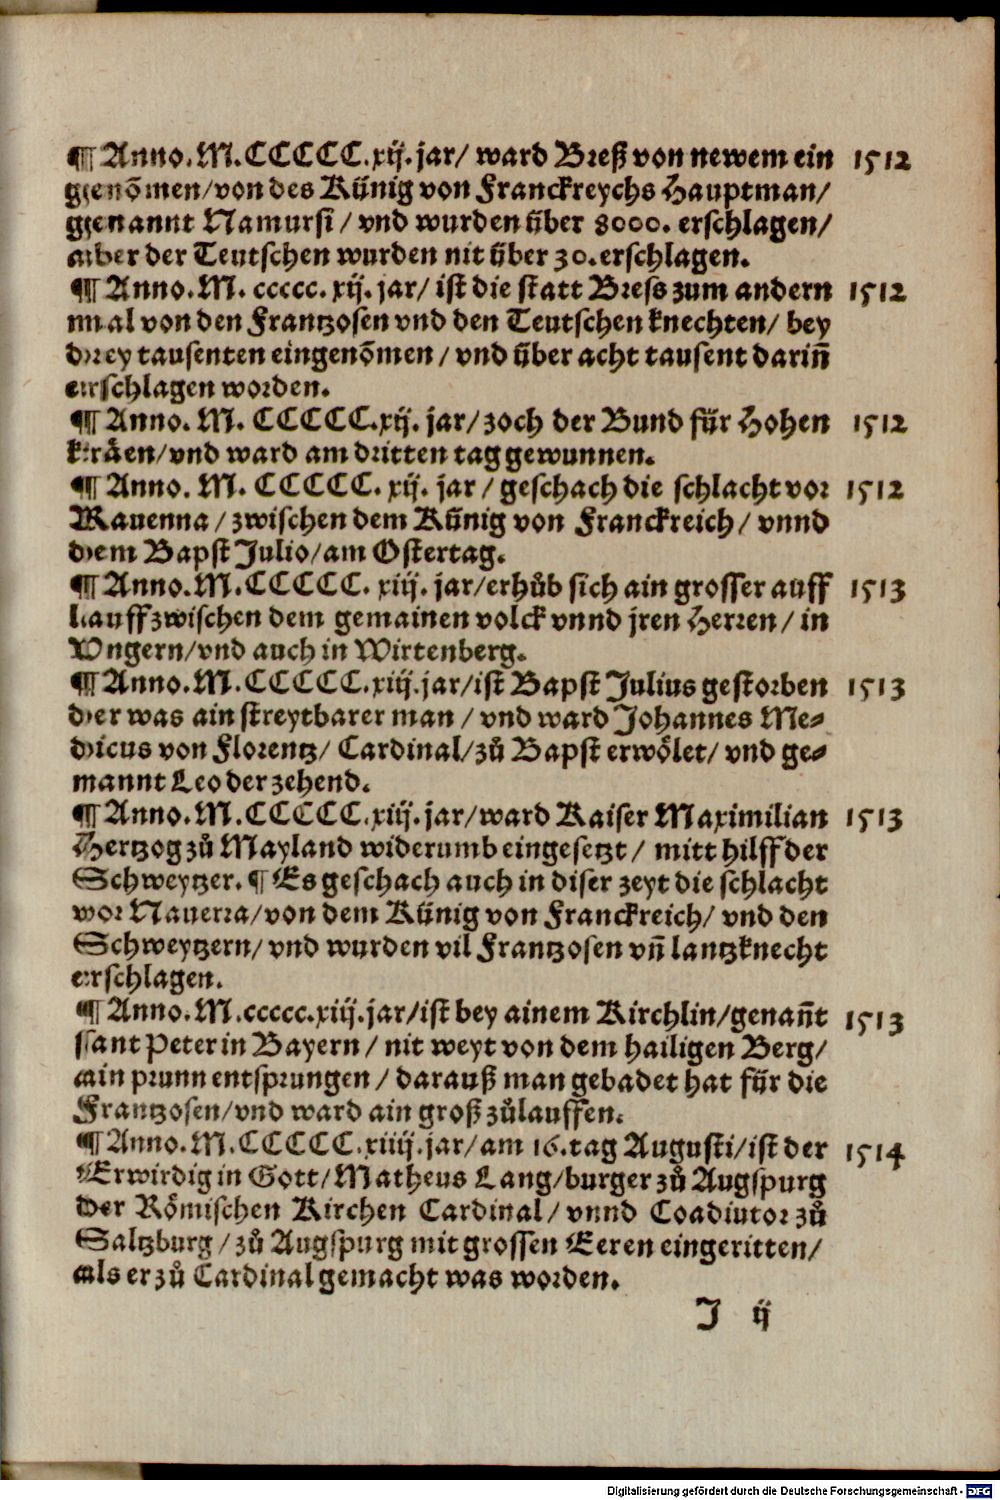 ¶ Anno. M. CCCCC. xij. jar/ ward Breß von newem ein 1512
genõmen/von des Künig von Franckreychs Hauptman/
genannt Namursi/ vnd wurden über 8000. erschlagen/
aber der Teutschen wurden nit über 30. erschlagen.
¶ Anno. M. ccccc. xij. jar/ ist die statt Bress zum andern 1512
mal von den Frantzosen vnd den Teutschen knechten/ bey
drey tausenten eingenõmen/ vnd über acht tausent dariñ
erschlagen worden.
¶ Anno. M. CCCCC. xij. jar/ zoch der Bund für Hohen 1512
kräen/vnd ward am dritten tag gewunnen.
¶ Anno. M. CCCCC. xij. jar/ geschach die schlacht vor 1512
Rauenna/ zwischen dem Künig von Franckreich/ vnnd
dem Bapst Julio/am Ostertag.
¶ Anno. M. CCCCC. xiij. jar/erhůb sich ain grosser auff 1513
lauff zwischen dem gemainen volck vnnd jren Herren/ in
Vngern/vnd auch in Wirtenberg.
¶ Anno. M. CCCCC. xiij. jar/ist Bapst Julius gestorben 1513
der was ain streytbarer man/ vnd ward Johannes Me-
dicus von Florentz/ Cardinal/zů Bapst erwölet/ vnd ge-
nannt Leo der zehend.
¶ Anno. M. CCCCC. xiij. jar/ward Kaiser Maximilian 1513
Hertzog zů Mayland widerumb eingesetzt/ mitt hilff der
Schweytzer. ¶ Es geschach auch in diser zeyt die schlacht
vor Nauerra/von dem Künig von Franckreich/ vnd den
Schweytzern/ vnd wurden vil Frantzosen vñ lantzknecht
erschlagen.
¶ Anno. M. ccccc. xiij. jar/ist bey ainem Kirchlin/genañt 1513
sant Peter in Bayern/ nit weyt von dem hailigen Berg/
ain prunn entsprungen/ darauß man gebadet hat für die
Frantzosen/vnd ward ain groß zůlauffen.
¶ Anno. M. CCCCC. xiiij. jar/am 16. tag Augusti/ist der 1514
Erwirdig in Gott/Matheus Lang/burger zů Augspurg
der Römischen Kirchen Cardinal/ vnnd Coadiutor zů
Saltzburg/ zů Augspurg mit grossen Eeren eingeritten/
als er zů Cardinal gemacht was worden.
J ij
Digitalisierung gefördert durch die Deutsche Forschungsgemeinschaft - DFG